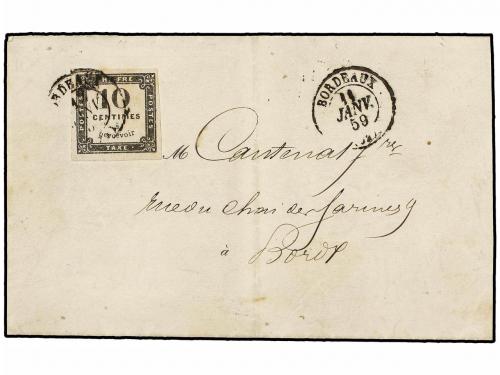 BORDEAUX
11
JANV.
59
CHIFFRE
POSTES
10
CENTIMES
à percevoir
POSTES
TAXE
M Cantenat Jne
rue du Chai des farines 9
à
Bordx